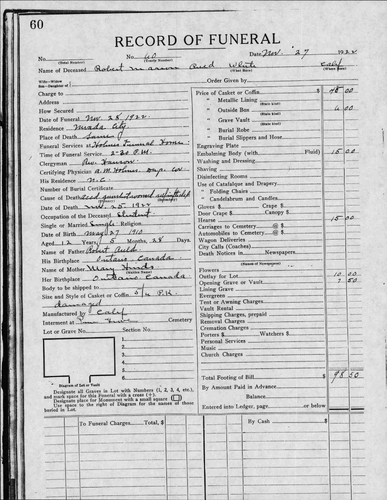 60
RECORD OF FUNERAL
No. No. 60 Date Nov. 27 1922
(Total Number) (Yearly Number)
Name of Deceased Robert Auld White Calif
(What Race) (Where Born)
Order Given by
Charge to
Address
How Secured
Date of Funeral Nov. 28 1922
Residence Nevada City
Place of Death Same
Funeral Services at Holmes Funeral Home
Time of Funeral Service 2-30 P.M.
Clergyman Rev.
Certifying Physician Holmes Dep. Cor.
His Residence N.C.
Number of Burial Certificate
Cause of Death
Date of Death Nov. 25 1922
Occupation of the Deceased Student
Single or Married Single Religion
Date of Birth May 27 1910
Aged 12 Years, 5 Months, 28 Days
Name of Father Robert Auld
His Birthplace Ontario, Canada
Name of Mother Mary Hinds
Her Birthplace Ontario, Canada
Body to be shipped to
Size and Style of Casket or Coffin P.K.
damaged
Manufactured by Calif
Interment at Cemetery
Lot or Grave No. Section No.
1
2
3
4
5
6
7
8
Diagram of Lot or Vault
Designate all Graves in Lot with Numbers (1, 2, 3, 4, etc.),
and mark space for this Funeral with a cross (+).
Designate place for Monument with a small square
Use space to the right of Diagram for the names of those
buried in Lot.
Price of Casket or Coffin 48.00
" Metallic Lining
(State kind)
" Outside Box 6.00
(State kind)
" Grave Vault
(State kind)
" Burial Robe
" Burial Slippers and Hose
Engraving Plate
Embalming Body (with Fluid) 15.00
Washing and Dressing
Shaving
Disinfecting Rooms
Use of Catafalque and Drapery
" Folding Chairs
" Candelabrum and Candles
Gloves $ Crape $
Door Crape $ Canopy $
Hearse 15.00
Carriages to Cemetery @ $
Automobiles to Cemetery @ $
Wagon Deliveries
City Calls (Coaches)
Death Notices in Newspapers
(Names of Newspapers)
Flowers
Outlay for Lot
Opening Grave or Vault
Lining Grave
Evergreen
Tent or Awning Charges
Vault Rental
Shipping Charges, prepaid
Removal Charges
Cremation Charges
Porters $ Watchers $
Personal Services
Music
Church Charges
Total Footing of Bill 98 50
By Amount Paid in Advance
Balance
Entered into Ledger, page or below
To Funeral Charges, Total $ By Cash $